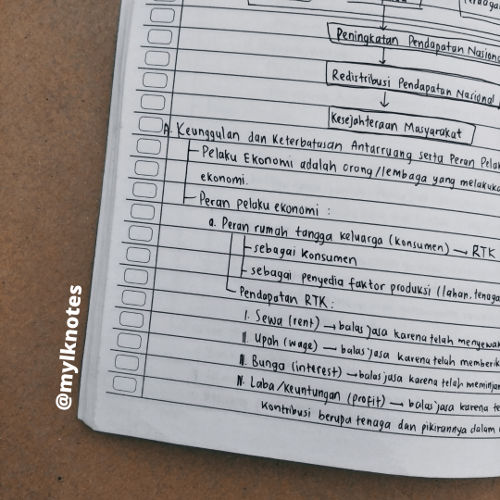 Peningkatan Pendapatan Nasional
Redistribusi Pendapatan Nasional
Kesejahteraan Masyarakat
A. Keunggulan dan Keterbatasan Antarruang serta Peran Pelaku
Pelaku Ekonomi adalah orang/lembaga yang melakuka
ekonomi.
Peran pelaku ekonomi :
a. Peran rumah tangga keluarga (konsumen) → RTK
- sebagai konsumen
- sebagai penyedia faktor produksi (lahan, tenaga
Pendapatan RTK :
I. Sewa (rent) → balas jasa karena telah menyewa
II. Upah (wage) → balas jasa karena telah memberik
III. Bunga (interest) → balas jasa karena telah meminjam
IV. Laba/keuntungan (profit) → balas jasa karena te
Kontribusi berupa tenaga dan pikirannya dalam
@mylknotes